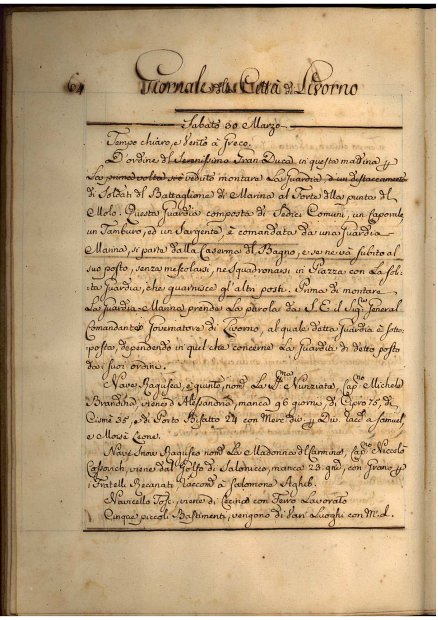 64
Giornale della Città di Livorno
Sabato 30 Marzo
Tempo chiaro, e Vento à Greco.
D'ordine del Serenissimo Gran Duca in questa mattina p
La prima volta si è veduto montare La Guardia, d'un distaccamento
di Soldati del Battaglione di Marina al Forte della punta del
Molo. Questa Guardia composta di Sedici Comuni, un Caporale,
un Tamburo, ed un Sargente, è comandata da una Guardia
Marina, si parte dalla Caserma del Bagno, e se ne và subito al
suo posto, senza mescolarsi, ne Squadronarsi in Piazza con La soli-
ta Guardia, che guarnisce gl'altri posti. Prima di montare
La Guardia Marina prende La parola da S. E. il Sig.r General
Comandante Governatore di Livorno, al quale detta Guardia è sotto-
posta, dependendo in quel che concerne La Guardia di detto posto
da i suoi ordini.
Nave Ragusea, è quinto, nom.a La SS.ma Nunziata, Cap.no Michele
Brandina, viene d'Alessandria, manca 96 giorni, di Cipro 75, di
Cisme 35, e di Porto Bisatto 24 con Merc. div. p Div. racc. a Samuel,
e Moisè Leone.
Nave Snow Raguseo nom.o La Madonna del Camino, Cap.no Niccolò
Cossovich, viene dal Golfo di Salonicco, manca 23 gni, con Grano p
i Fratelli Recanati raccom.o à Salomone Aghib.
Navicello Tosc., viene di Cecina con Ferro Lavorato
Cinque piccoli Bastimenti, vengono di Varj Luoghi con M. d.